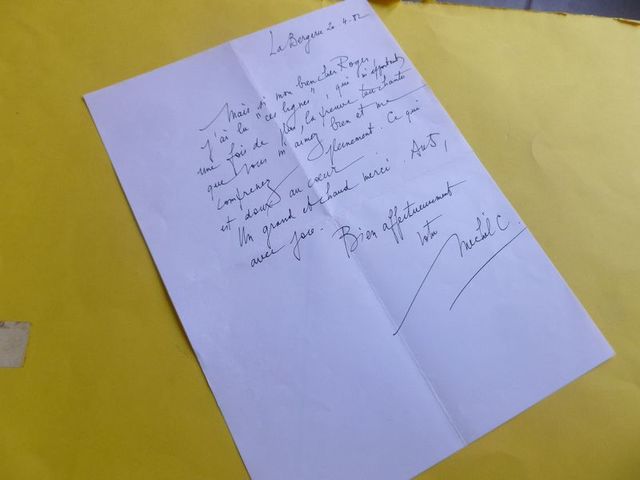 La Bergerie 20.4.82
Mais si mon bien cher Roger
J'ai lu "ces lignes", qui m'apportent
une fois de plus, la preuve touchante
que vous m'aimez bien et me
comprenez pleinement. Ce qui
est doux au coeur
Un grand et chaud merci. A
avec joie. Bien affectueusement
votre
Michel C.